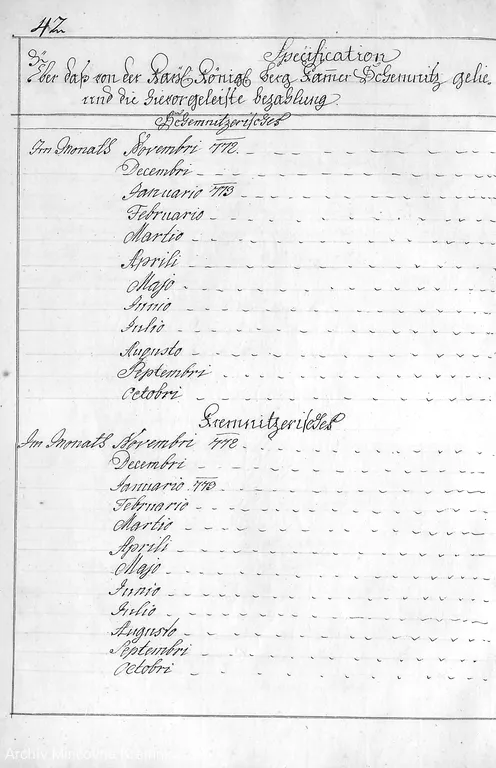 42
Specification
Über daß von der Kaÿsl Königl berg Kamer Schemnitz gelie-
und die hievorgeleiste bezahlung.
Schemnitzerisches
Im Monath Novembri 772
Decembri
Januario 773
Februario
Martio
Aprili
Majo
Junio
Julio
Augusto
Septembri
Octobri
Cremnitzerisches
Im Monath Novembri 772
Decembri
Januario 773
Februario
Martio
Aprili
Majo
Junio
Julio
Augusto
Septembri
Octobri
Archiv Mincovne Kremn